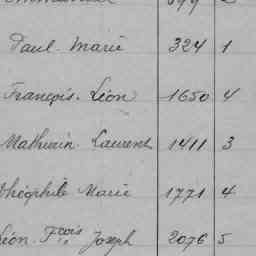 Paul Marie 324 1
François Léon 1650 4
Mathurin Laurent 1411 3
Théophile Marie 1771 4
Léon Fcois Joseph 2076 5